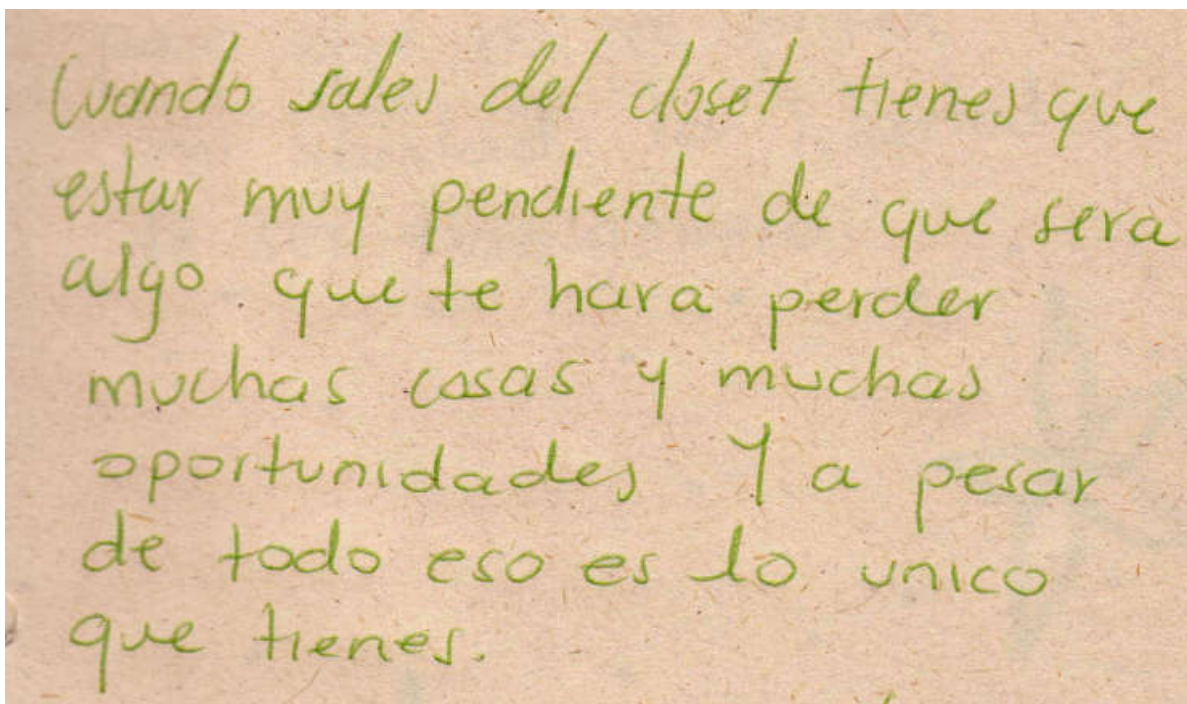 Cuando sales del closet tienes que
estar muy pendiente de que sera
algo que te hara perder
muchas cosas y muchas
oportunidades Y a pesar
de todo eso es lo unico
que tienes.